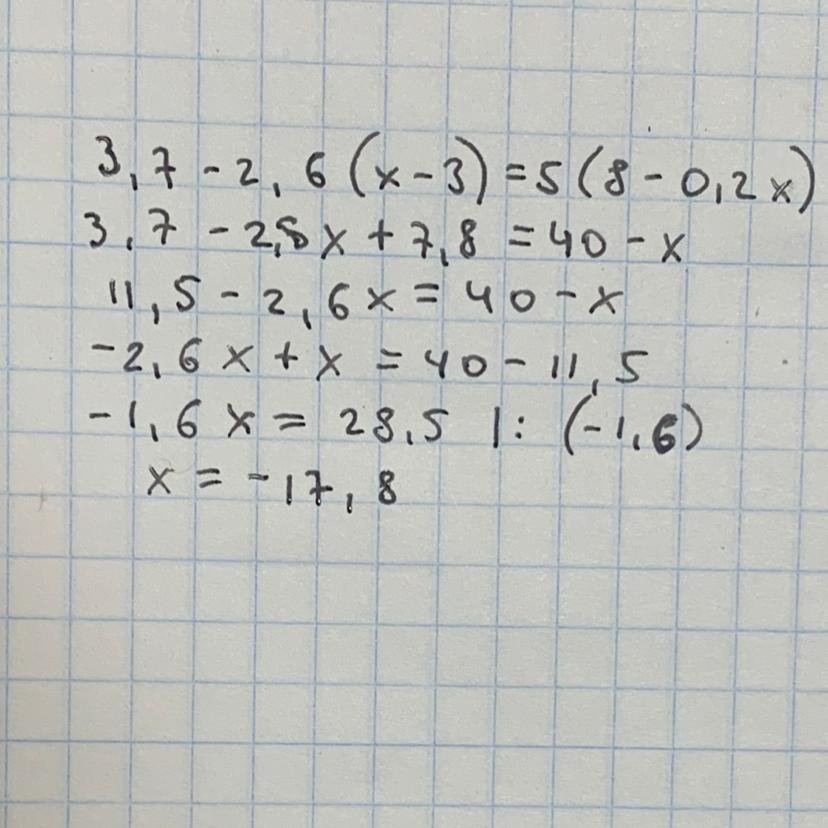 3,7 - 2,6(x - 3) = 5(8 - 0,2x)
3,7 - 2,6x + 7,8 = 40 - x
11,5 - 2,6x = 40 - x
-2,6x + x = 40 - 11,5
-1,6x = 28,5 |: (-1,6)
x = -17,8